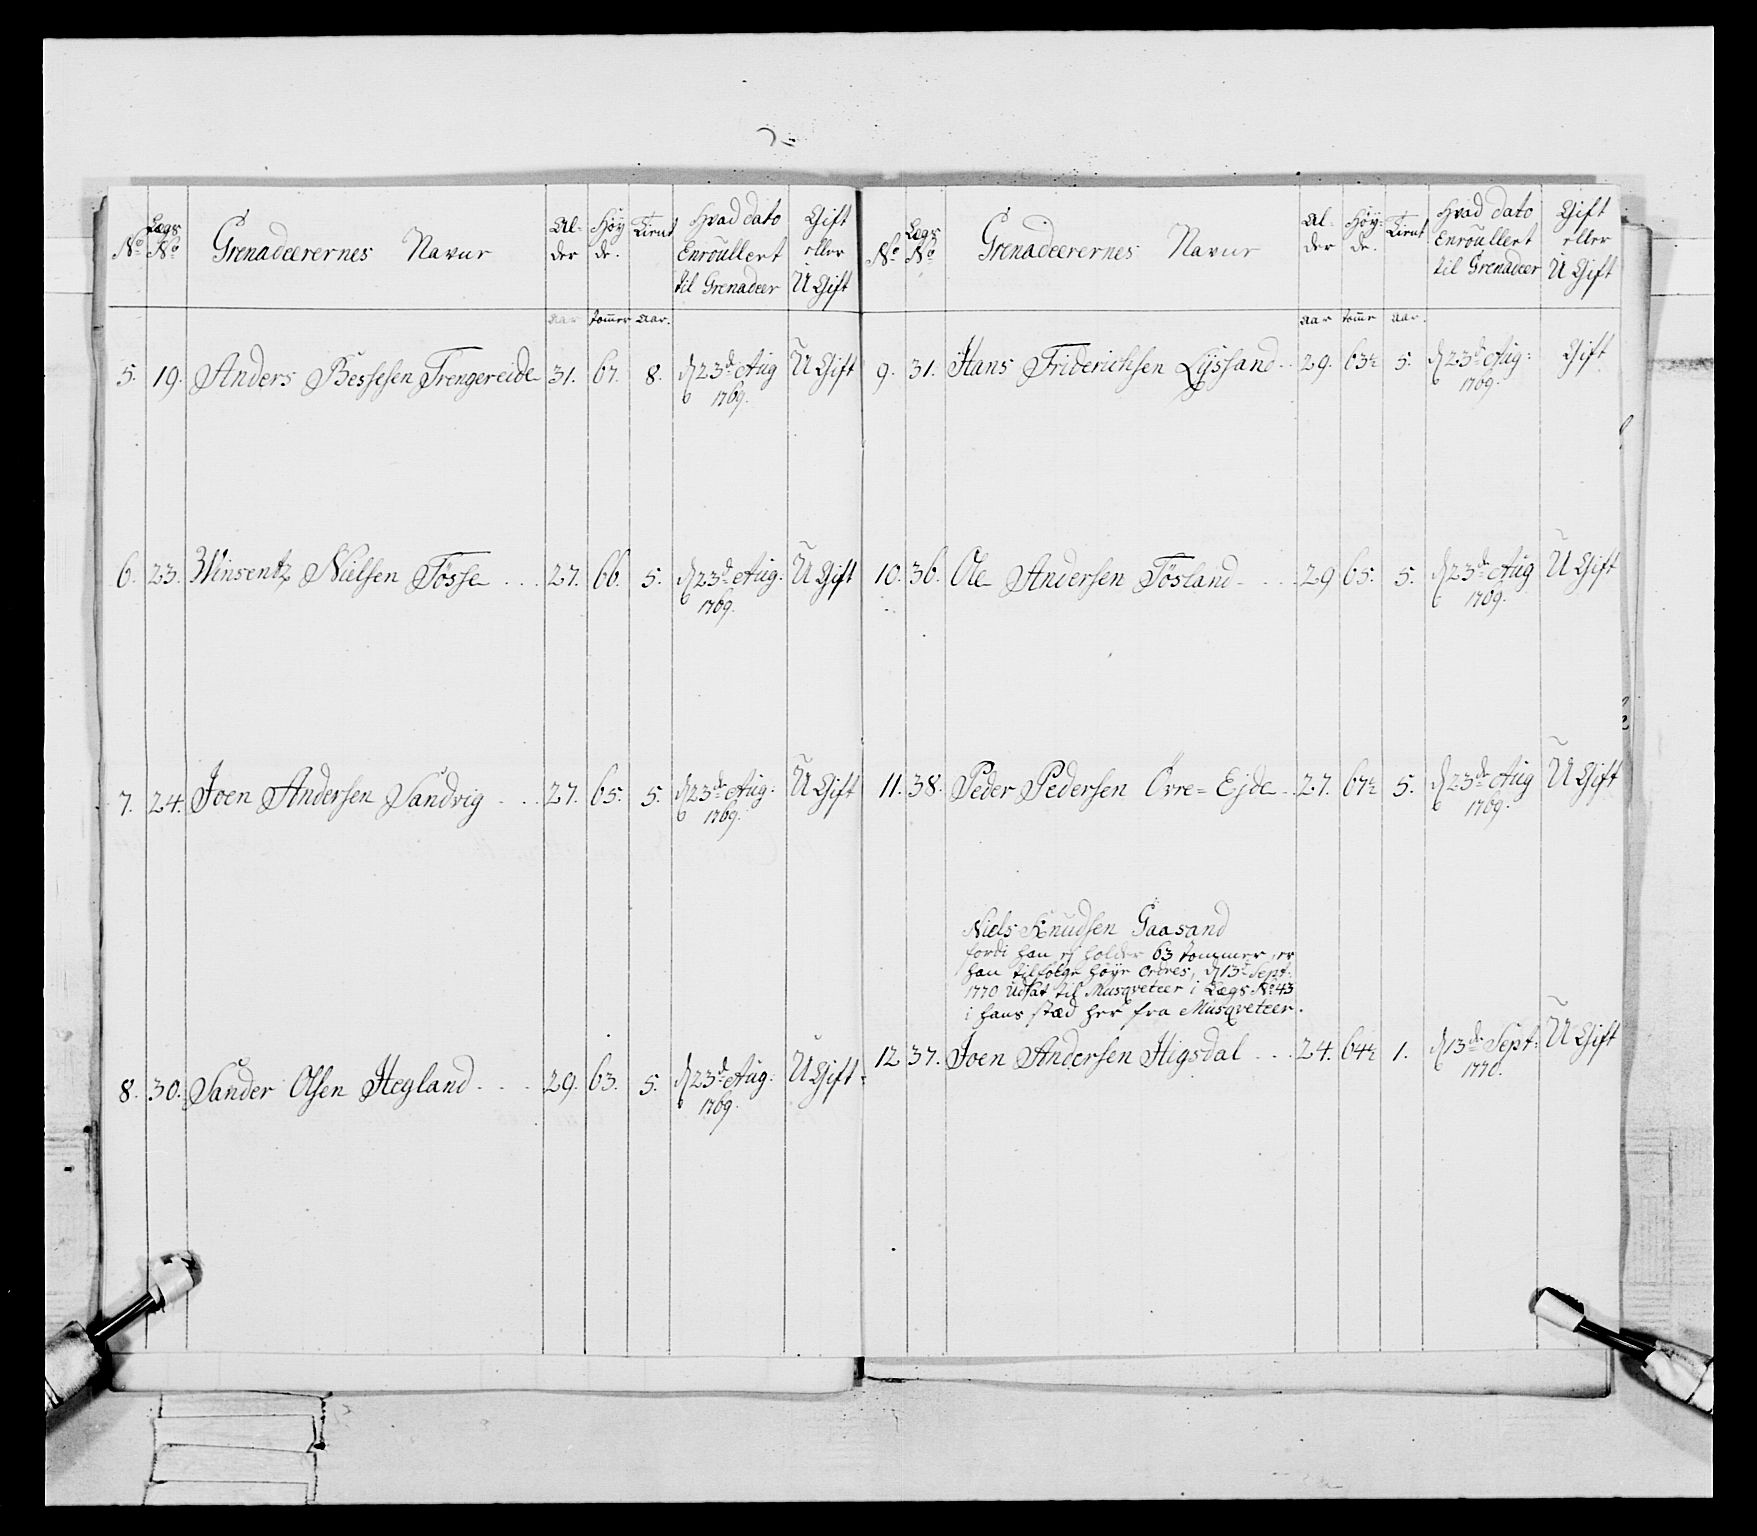 No Lægs No Grenadeerernes Navne Alder Høyde. Tient Hvad dato Enroullert til Grenadeer Gift eller U Gift
aar tom̅er aar.
5. 19. Anders Bessesen Trengereide 31. 67. 8. d 23de Aug 1769. U Gift
6. 23. Winsentz Nielsen Tösse . . . 27. 66. 5. d 23de Aug. 1769. U Gift
7. 24. Joen Andersen Sandvig . . . 27. 65. 5. d 23de Aug: 1769. U Gift
8. 30. Sander Olsen Hegland . . . 29. 63. 5. d 23de Aug: 1769. U Gift
No Lægs No Grenadeerernes Navne Alder Høyde. Tient Hvad dato Enroullert til Grenadeer Gift eller U Gift
aar tom̅e aar.
9. 31. Hans Friderichsen Lyssand . . 29. 63½ 5. d 23de Aug: 1769. Gift
10. 36. Ole Andersen Tösland . . . 29 65. 5. d 23de Aug 1769. U Gift
11. 38. Peder Pedersen Övre=Ejde . . 27. 67½ 5. d 23de Aug 1769. U Gift
Niels Knudsen Gaasand
fordi han ej holder 63 tommer, er
han tilfølge høye Ordres, d 13de Sept:
1770 udsat til Musqveteer i Lægs No 43
i hans stæd her fra Musqveteer.
12 37. Joen Andersen Higsdal . . . 24. 64½ 1. d 13de Sept: 1770. U Gift